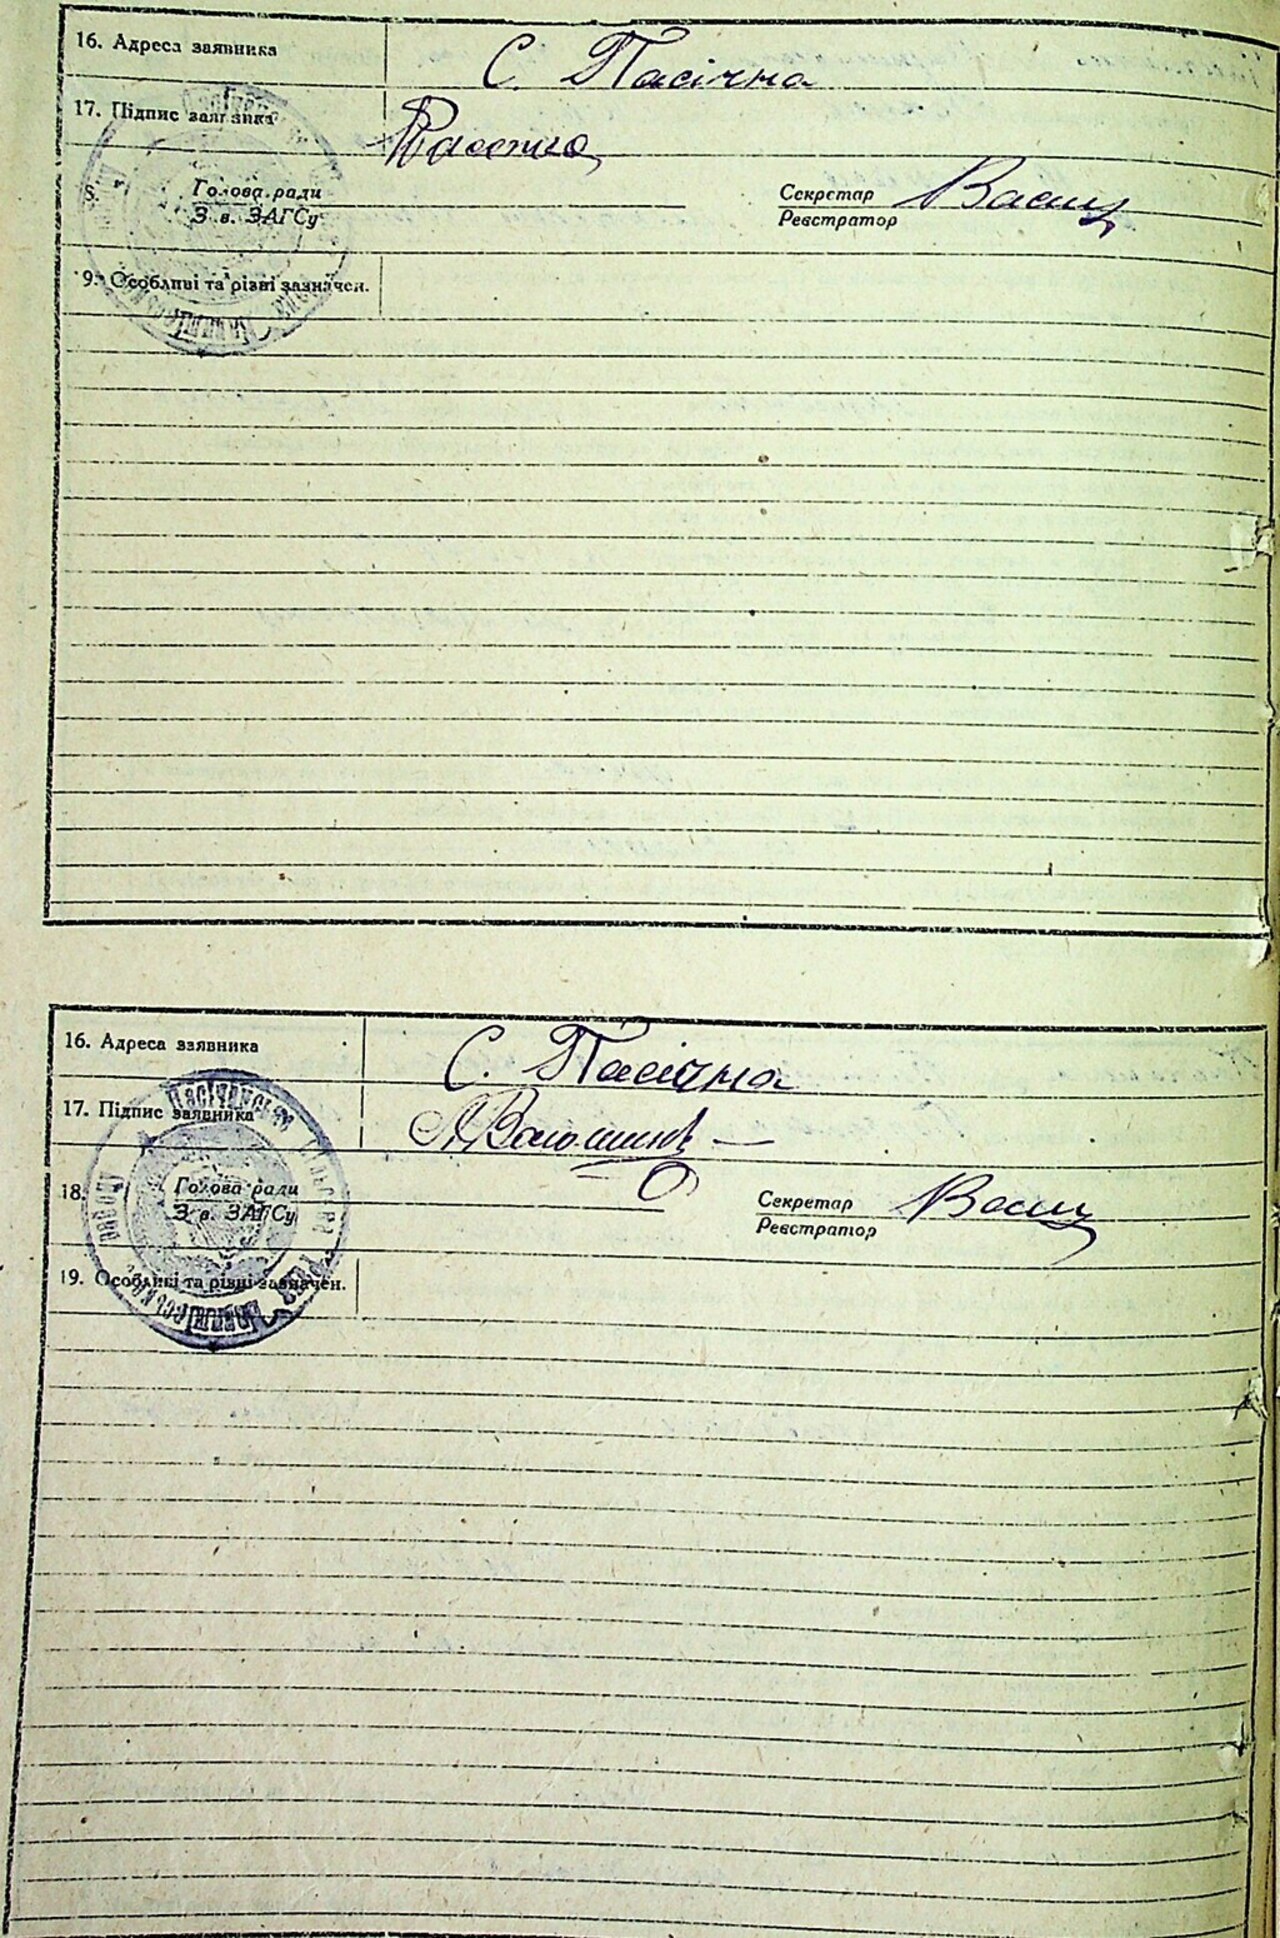 16. Адреса заявника С. Пасічна
17. Підпис заявника
Голова ради Секретар
З в. ЗАГСу Реєстратор
9. Особливі та різні зазначен.
16. Адреса заявника С. Пасічна
17. Підпис заявника
18. Голова ради Секретар
З в. ЗАГСу Реєстратор
19. Особливі та різні зазначен.